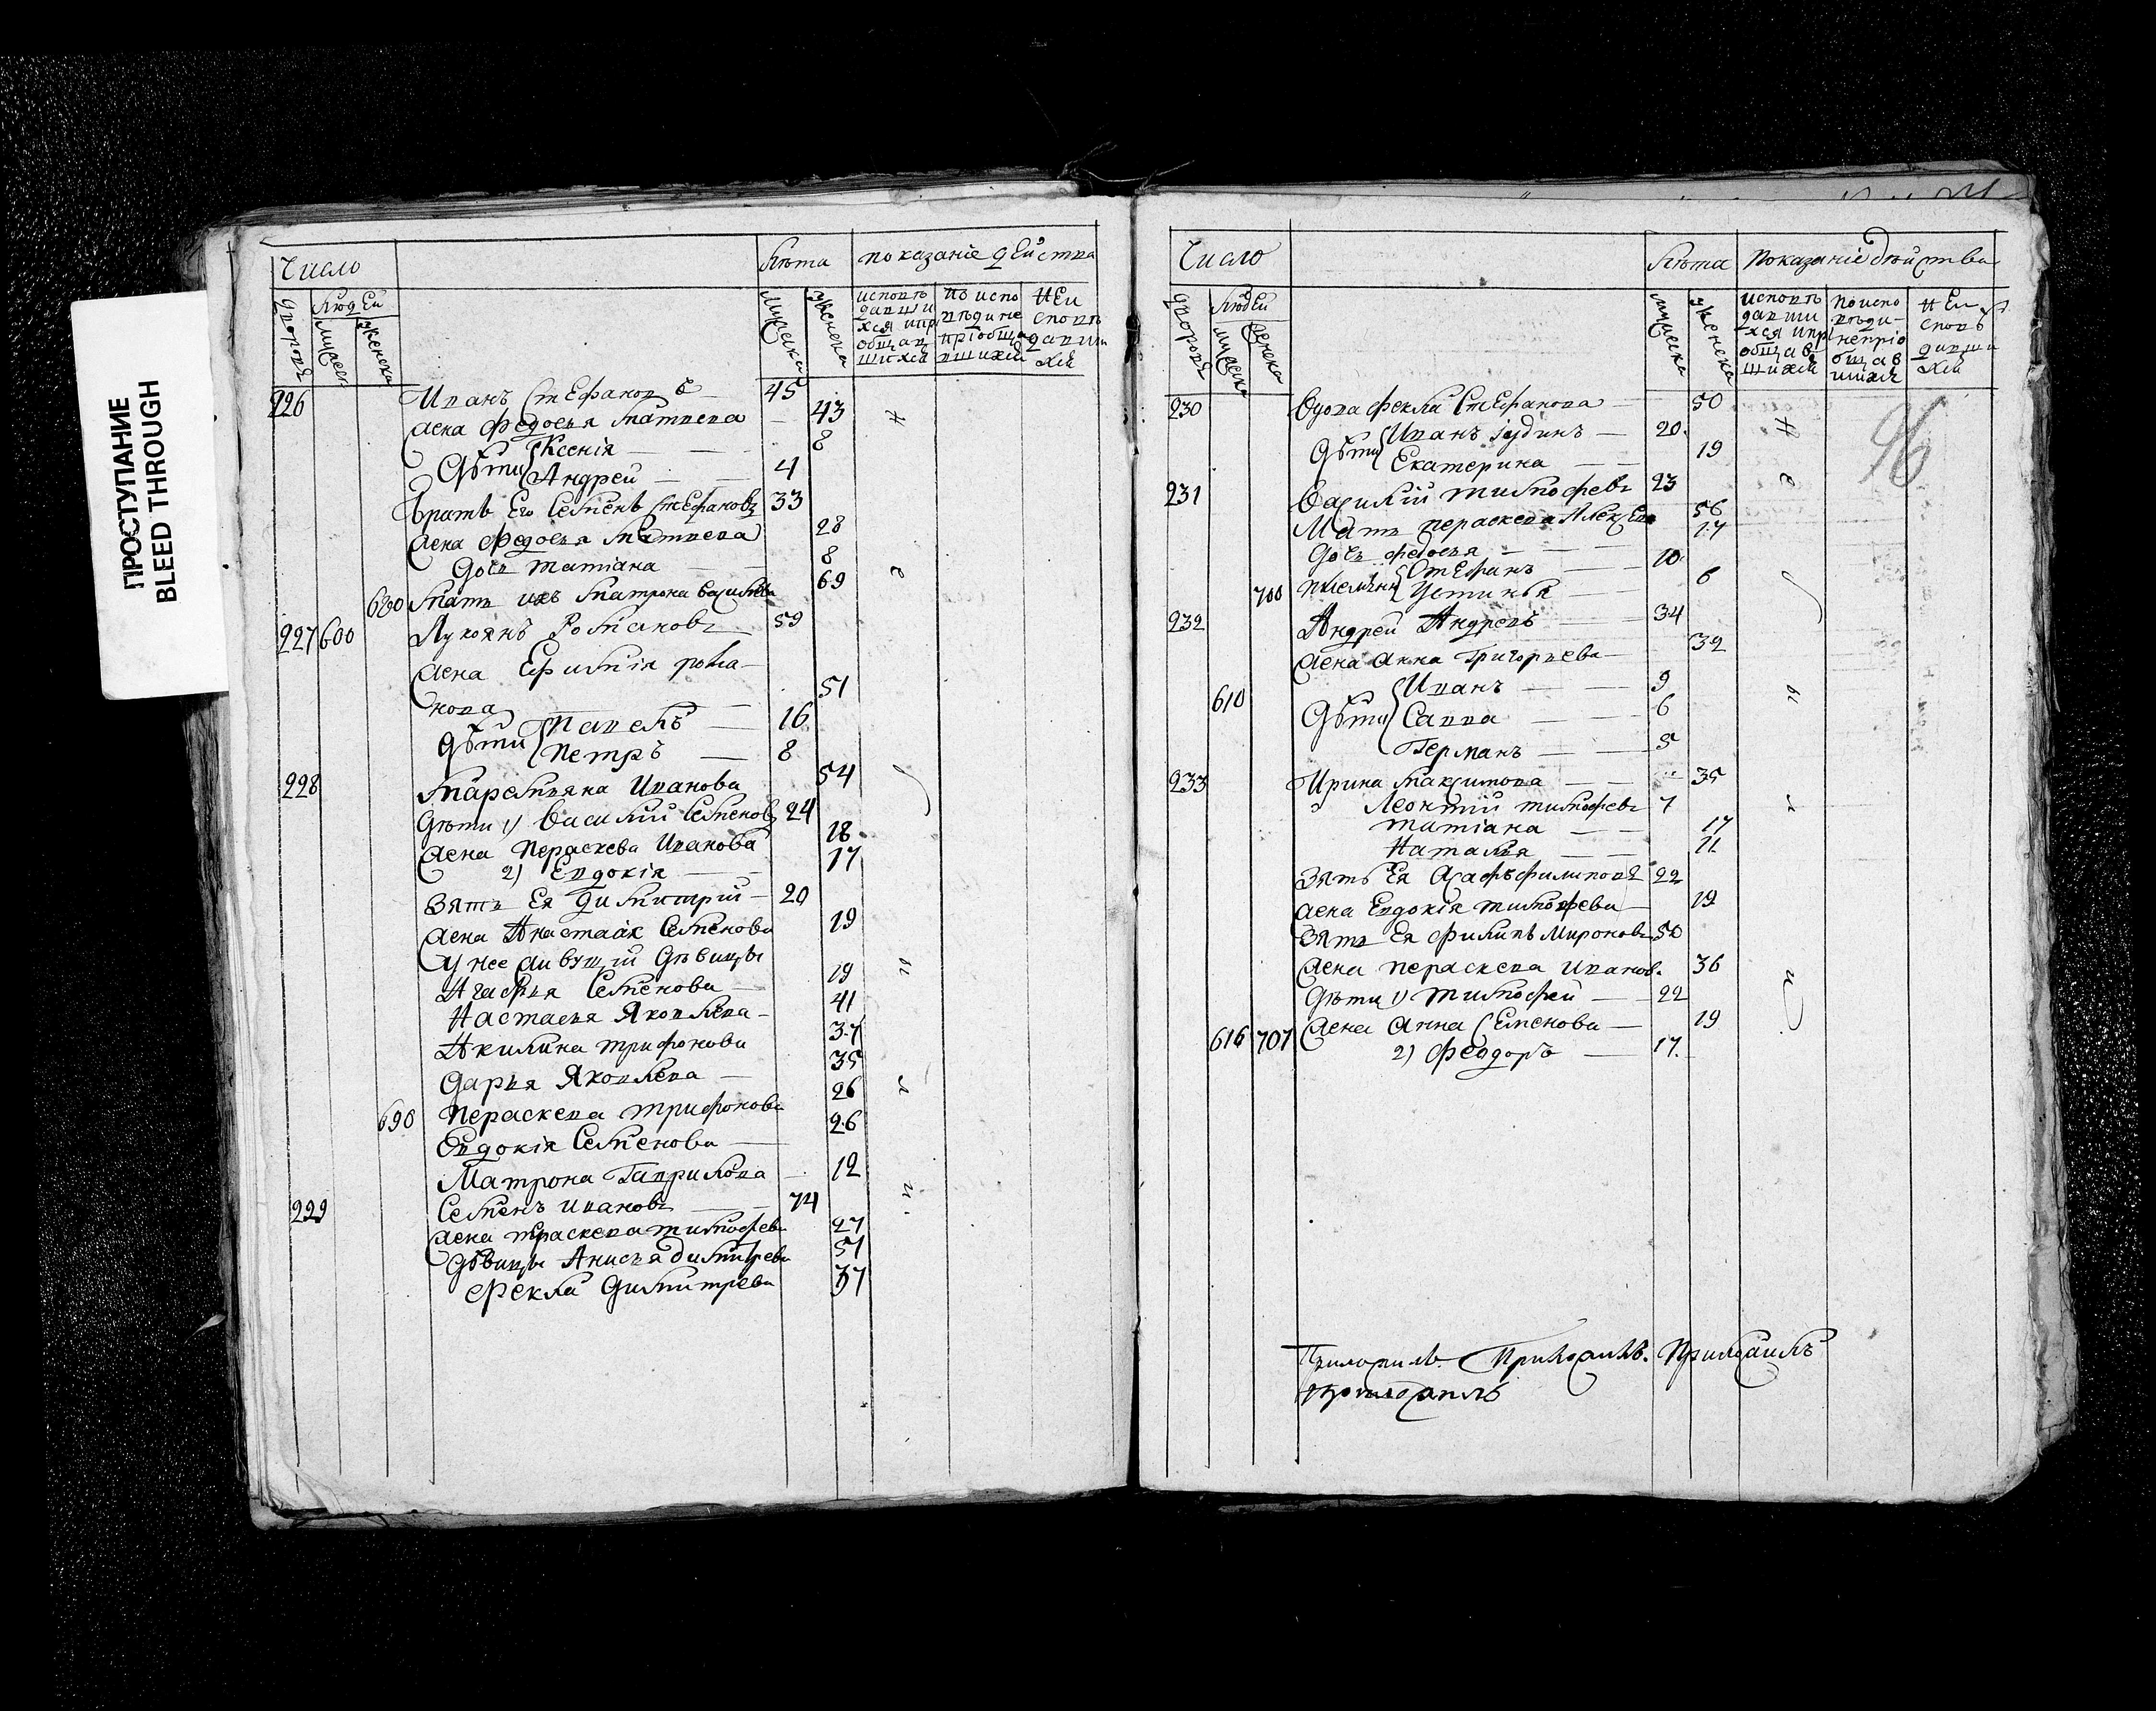 ПРОСТУПАНИЕ
BLEED THROUGH
Число
Лѣта
показаніе дѣйства
дворовъ
Людей
мужеск
женска
мужеска
женска
исповѣ
давши
хся ипр
общав
шихся
по испо
вѣди не
пріобща
вшихся
Не и
сповѣ
давши
хся
226 Иванъ Стефановъ 45
жена Федосья Матвеева — 43
Ксенія — 8
Дѣти Андрей — 4
братъ Его Семенъ Стефановъ 33
жена Федосья Матвеева 28
дочь татіана 8
680 мать ихъ Матрона василева 69
227 600 Лукоянъ Романовъ 59
жена Ефимія рома-
нова — 51
дѣти Павелъ — 16
Петръ — 8
228 Маремьяна Иванова 54
дѣти 1) василий Семенов 24
жена Пераскева Иванова 18
2) Евдокія — 17
зять Ея Димитрий — 20
жена Анастасія Семенова 19
у нее живущіи дѣвицы
Агафья Семенова — 19
Настасья Яковлева — 41
Акилина трифонова 37
Дарья Яковлева — 35
690 Пераскева трифонова 26
Евдокія Семенова — 26
Матрона Гаврилова — 12
229 Семенъ Ивановъ — 74
жена праскева тимофева 27
дѣвицы Анисья димитрева 51
Фекла Димитрева 37
Не
были
Число
Лѣта
Показаніе дѣйства
дворовъ
Людей
мужеска
женска
мужеска
женска
исповѣ
давши
хся ипр
общав
шихся
по испо
вѣди
непріо
бщав
шихся
Не и
сповѣ
давши
хся
96
230 вдова Фекла Стефанова — 50
Дѣти Иванъ іудинъ — 20
Екатерина — 19
231 Василій тимофевъ 23
Мать пераскева Алексева 56
дочь федосья — 17
племяники Стефанъ — 10
700 Устинья — 6
232 Андрей Андревъ — 34
жена Анна Григорьева — 32
610 Иванъ — 9
Дѣти Савва — 6
Германъ — 5
233 Ирина Максимова — 35
Леонтій тимофевъ 7
татіана — 17
Наталья — 11
зять Ея Асафъ филиповъ 22
жена Евдокія тимофева — 19
зять Ея филипъ Мироновъ 50
жена пераскева иванов. 36
дѣти 1) тимофей — 22
616 707 жена Анна Семенова — 19
2) Феодоръ — 17
Не
были